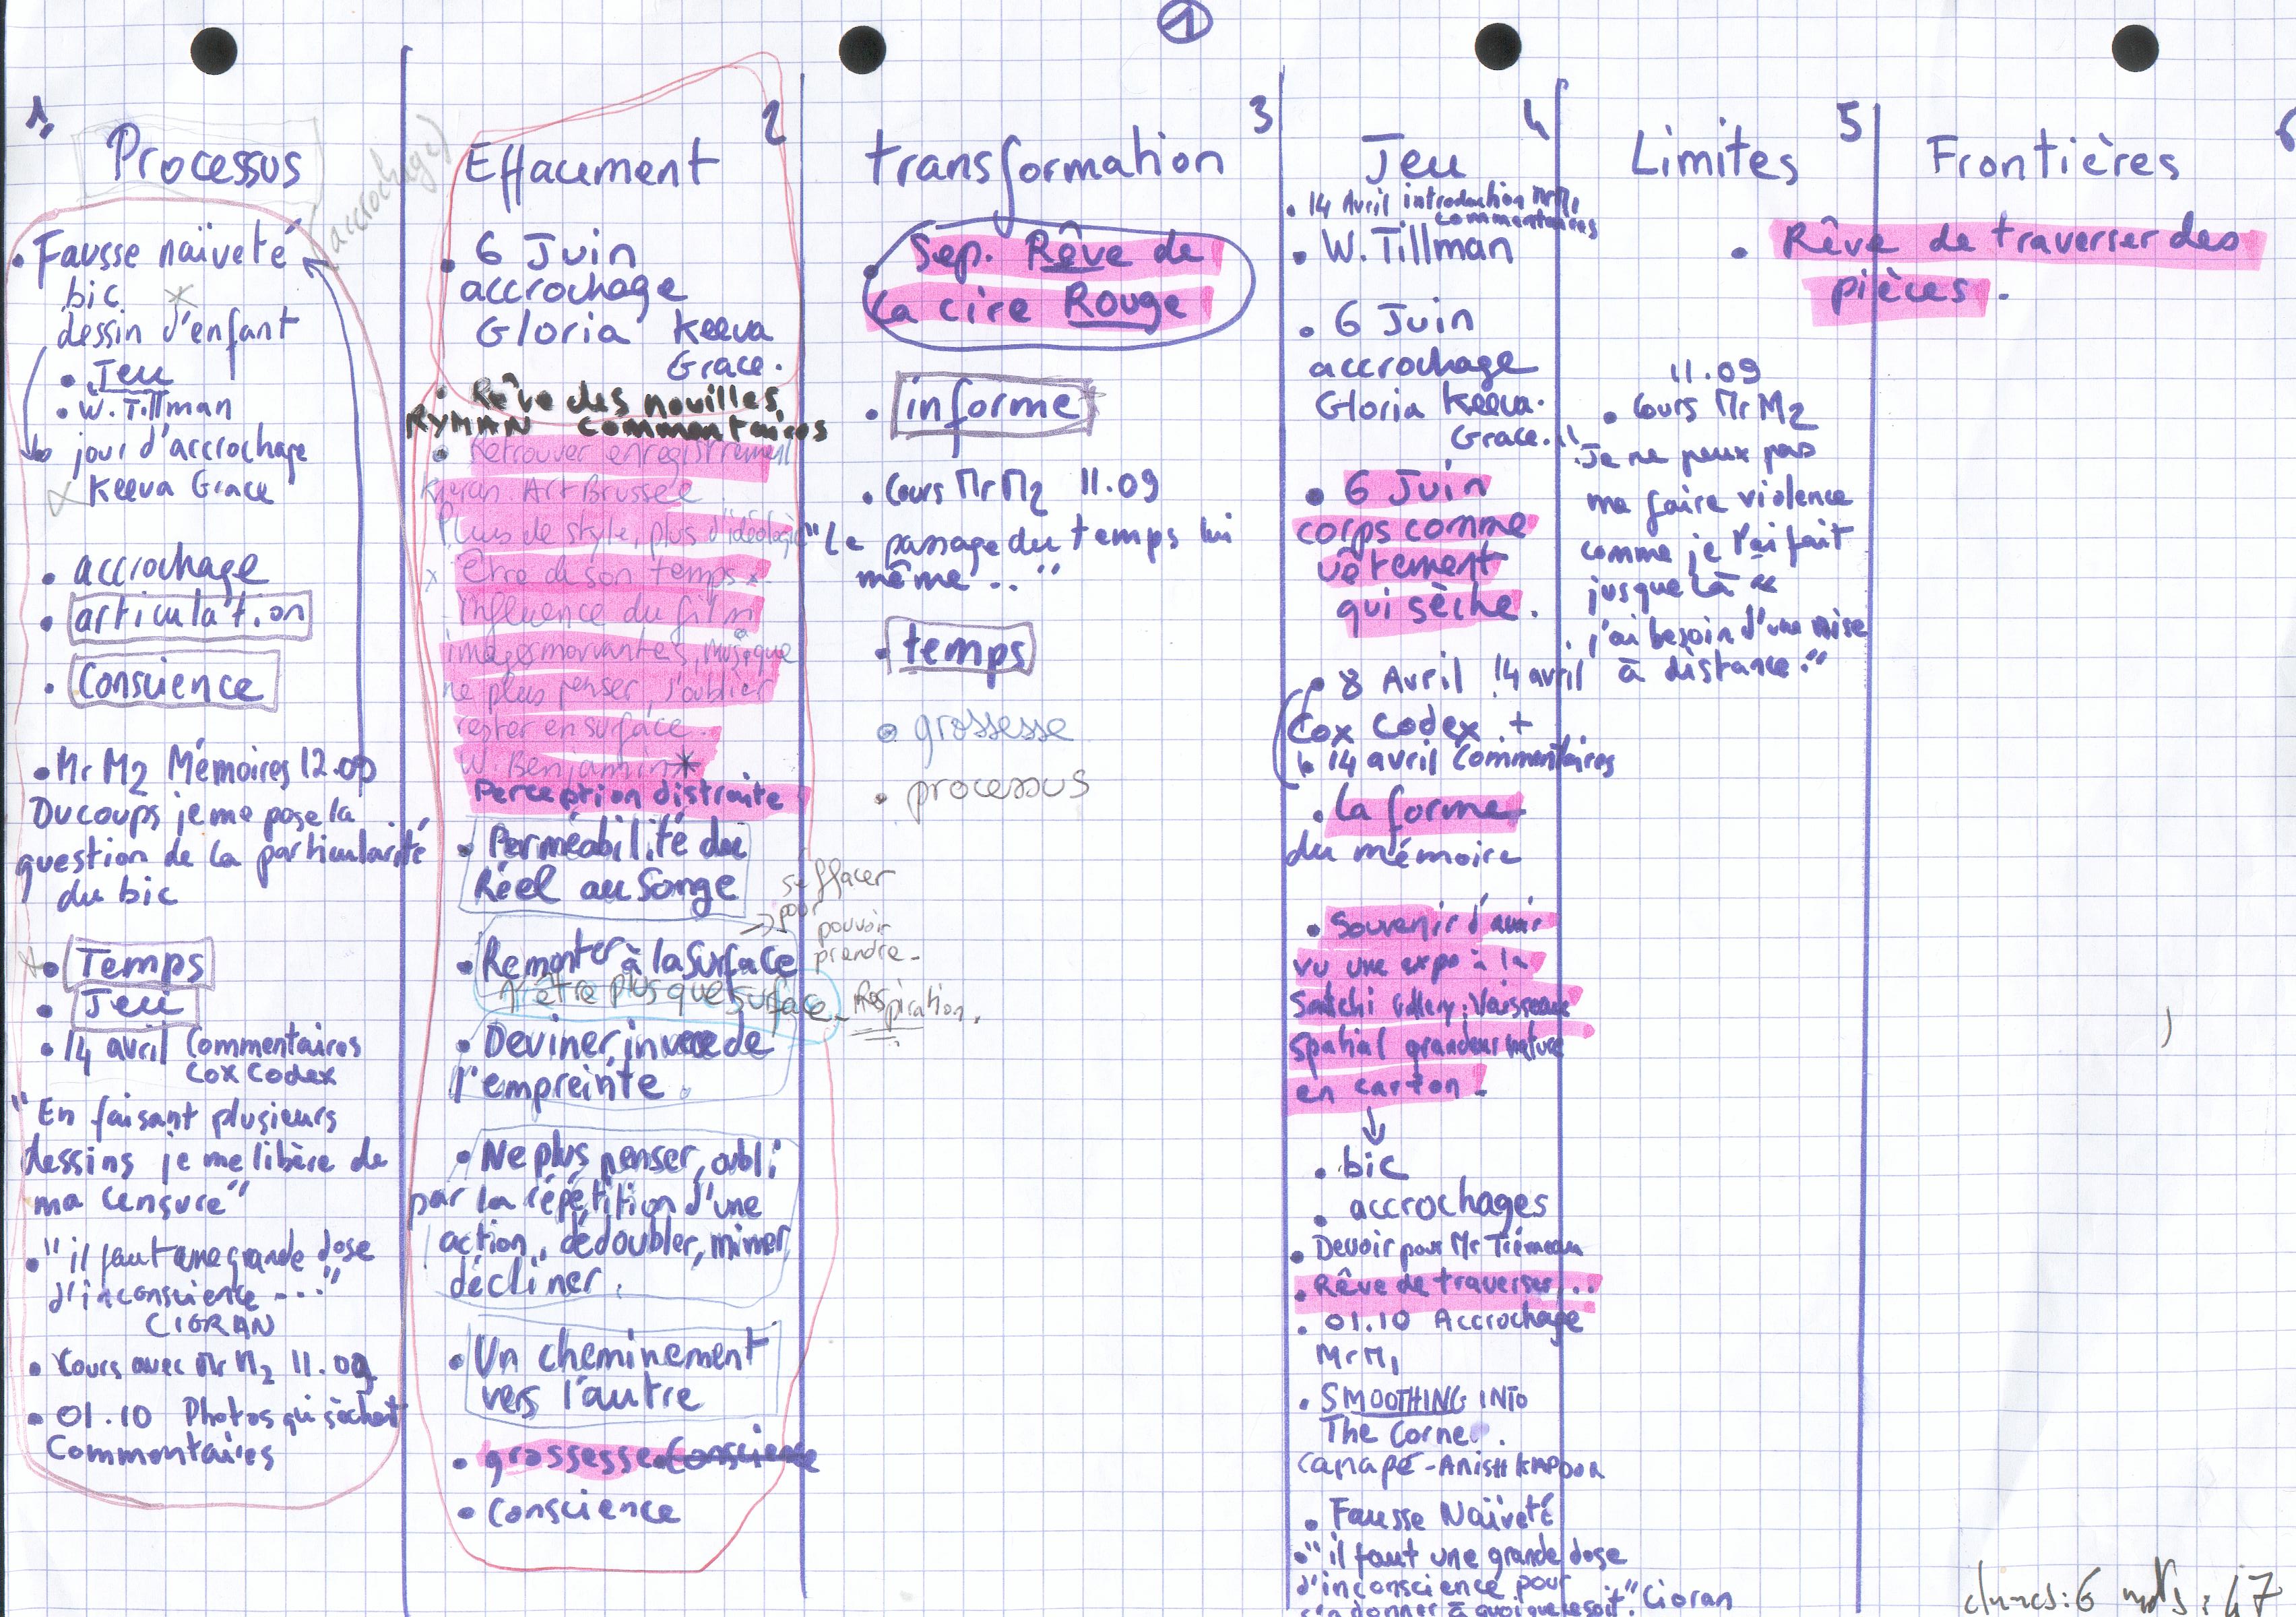 1
1.
Processus
(accrochage)
• Fausse naïveté
bic
dessin d'enfant
• Jeu
• W. Tillman
jour d'accrochage
Keeva Grace
• accrochage
• articulation
• Conscience
• Mr M2 Mémoires 12.09
Du coups je me pose la
question de la particularité
du bic
• Temps
• Jeu
• 14 avril Commentaires
Cox Codex
"En faisant plusieurs
dessins je me libère de
ma censure"
• "il faut une grande dose
d'inconscience ---"
CIORAN
• Cours avec Mr M2 11.09
• 01.10 Photos qui sèchent
Commentaires
2
Effacement
• 6 Juin
accrochage
Gloria Keeva
Grace.
• Rêve des nouilles,
RYMAN Commentaires
• Retrouver enregistrement
Art Brussel
Plus de style, plus d'idéologie
x Être de son temps x
- Influence du film
images mouvantes, musique
ne plus penser, s'oublier
rester en surface.
W. Benjamin *
Perception distraite
• Perméabilité du
Réel au Songe
→ s'effacer
pour
pouvoir
prendre -
• Remonter à la surface
N'être plus que surface - Respiration.
• Deviner, inverse de
l'empreinte.
• Ne plus penser, oubli
par la répétition d'une
action, dédoubler, mimer
décliner.
• Un cheminement
vers l'autre
• grossesse • Conscience
• Conscience
3
transformation
• Sep. Rêve de
la cire Rouge
• informe *
• Cours Mr M2 11.09
"Le passage du temps lui
même..."
• temps
• grossesse
• processus
4
Jeu
• 14 Avril introduction Mr M1
commentaires
• W. Tillman
• 6 Juin
accrochage
Gloria Keeva.
Grace.
• 6 Juin
corps comme
vêtement
qui sèche.
• 8 Avril 14 avril
Cox Codex +
14 avril Commentaires
• la forme
du mémoire
• Souvenir d'avoir
vu une expo à la
Saatchi Gallery : Vaisseau
spatial grandeur nature
en carton -
• bic
• accrochages
• Devoir pour Mr
• Rêve de traverser...
• 01.10 Accrochage
Mr M1
• SMOOTHING INTO
The Corner.
canapé - ANISH KAPOOR
• Fausse Naïveté
• "il faut une grande dose
d'inconscience pour
s'adonner à quoi que ce soit." Cioran
5
Limites
11.09
• Cours Mr M2
"Je ne peux pas
me faire violence
comme je l'ai fait
jusque là"
"j'ai besoin d'une mise
à distance."
6
Frontières
• Rêve de traverser des
pièces.